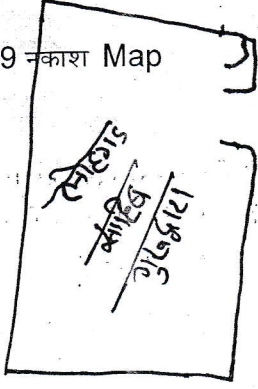 9 नकाश Map
साहिब
गुरुद्वारा